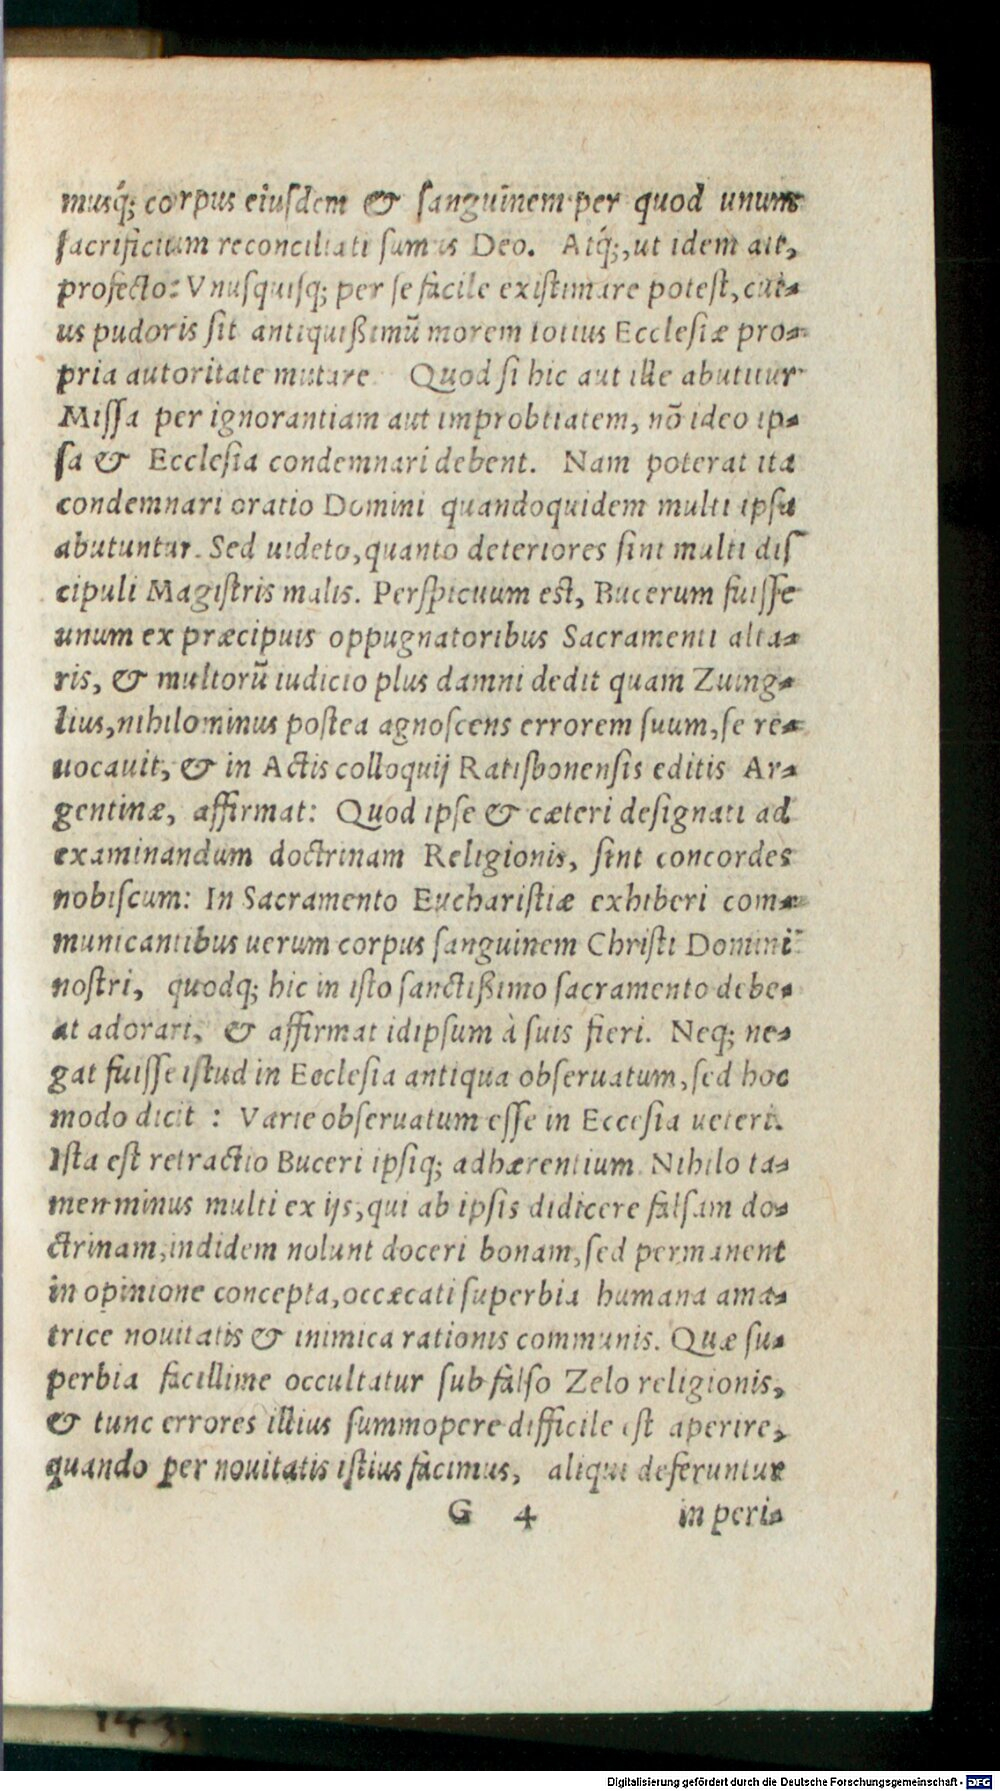 musq́; corpus eiusdem & sanguinem per quod unum
sacrificium reconciliati sumus Deo. Atq́;, ut idem ait,
profecto: Vnusquisq; per se facile existimare potest, cui-
us pudoris sit antiquißimũ morem totius Ecclesiæ pro-
pria autoritate mutare. Quod si hic aut ille abutitur
Missa per ignorantiam aut improbitatem, nõ ideo ip-
sa & Ecclesia condemnari debent. Nam poterat ita
condemnari oratio Domini quandoquidem multi ipsa
abutuntur. Sed uideto, quanto deteriores sint multi dis
cipuli Magistris malis. Perspicuum est, Bucerum fuisse
unum ex præcipuis oppugnatoribus Sacramenti alta-
ris, & multorũ iudicio plus damni dedit quam Zuing-
lius, nihilominus postea agnoscens errorem suum, se re-
uocauit, & in Actis colloquij Ratisbonensis editis Ar-
gentinæ, affirmat: Quod ipse & cæteri designati ad
examinandum doctrinam Religionis, sint concordes
nobiscum: In Sacramento Eucharistiæ exhiberi com-
municantibus uerum corpus sanguinem Christi Domini
nostri, quodq; hic in isto sanctißimo sacramento debe-
at adorari, & affirmat idipsum à suis fieri. Neq; ne-
gat fuisse istud in Ecclesia antiqua obseruatum, sed hoc
modo dicit : Varie obseruatum esse in Eccesia ueteri.
Ista est retractio Buceri ipsiq; adhærentium. Nihilo ta-
men minus multi ex ijs, qui ab ipsis didicere falsam do-
ctrinam, indidem nolunt doceri bonam, sed permanent
in opinione concepta, occæcati superbia humana ama-
trice nouitatis & inimica rationis communis. Quæ su-
perbia facillime occultatur sub falso Zelo religionis,
& tunc errores illius summopere difficile est aperire,
quando per nouitatis istius facimus, aliqui deferuntur
G 4 in peri-
143.
Digitalisierung gefördert durch die Deutsche Forschungsgemeinschaft - DFG